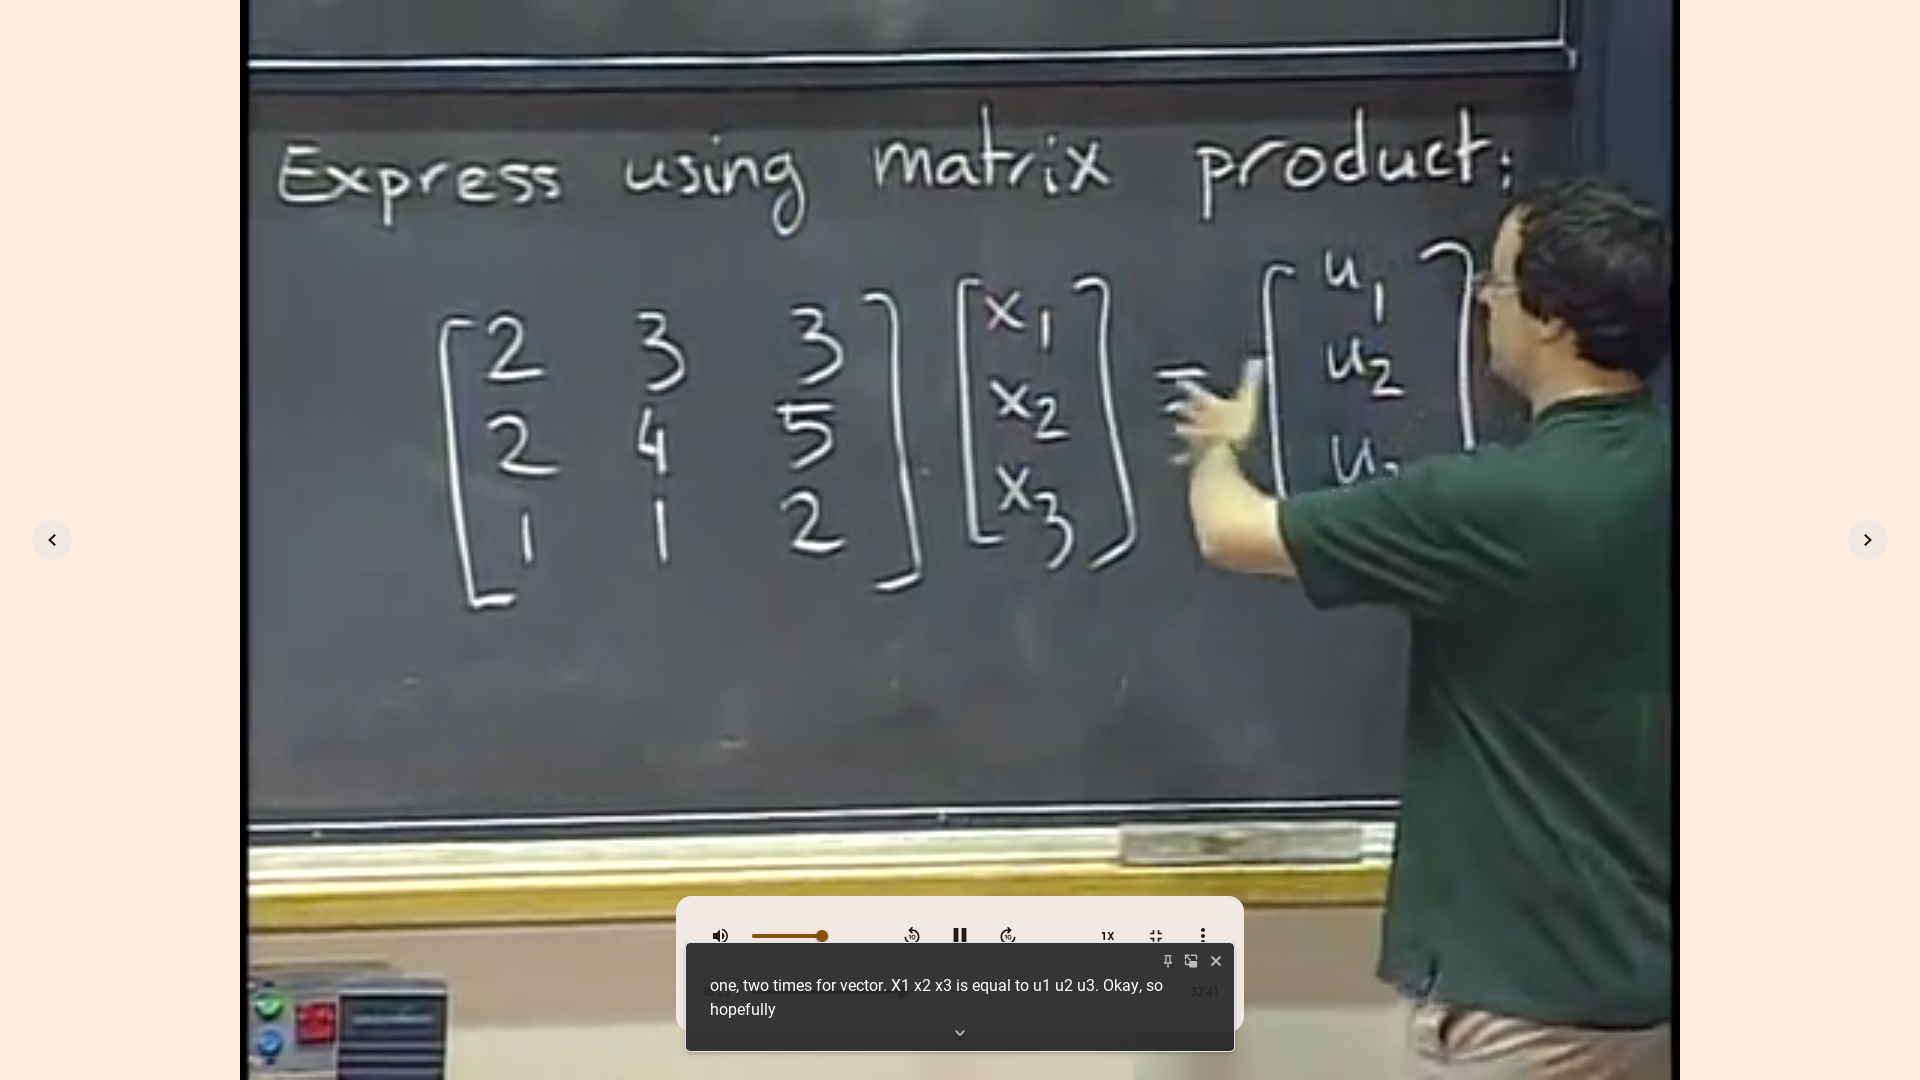 Express using matrix product:
[2 3 3] [x1] = [u1]
[2 4 5] [x2] [u2]
[1 1 2] [x3] [u3]
1X
one, two times for vector. X1 x2 x3 is equal to u1 u2 u3. Okay, so
hopefully
32:41